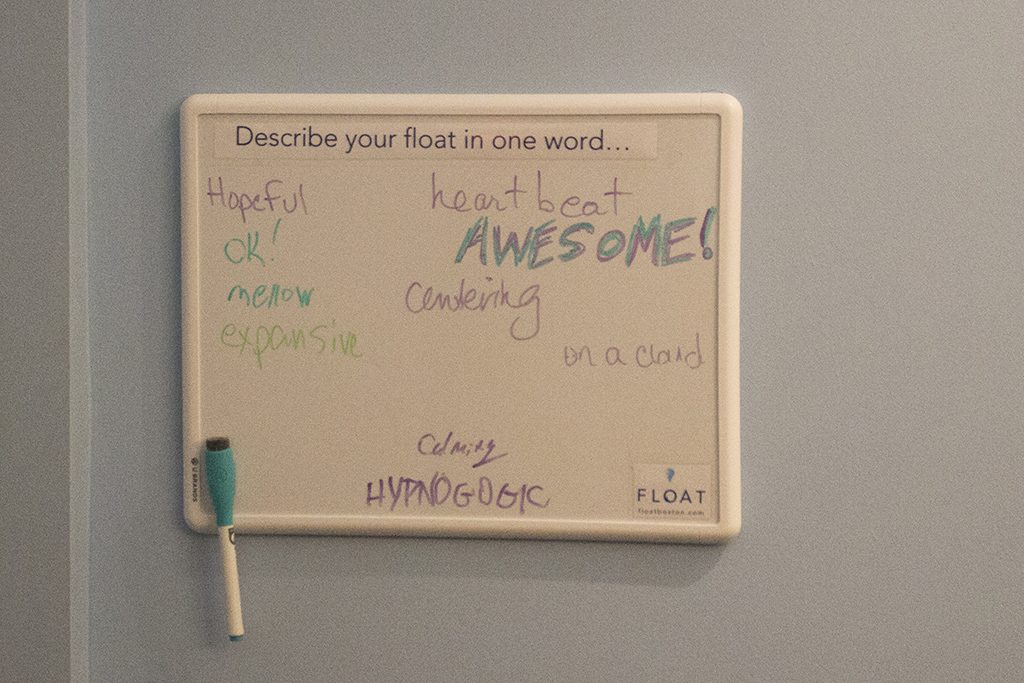 Describe your float in one word...
Hopeful
OK!
mellow
expansive
heartbeat
AWESOME!
Centering
on a cloud
Calming
HYPNOGOGIC
FLOAT
floatboston.com
U BRANDS